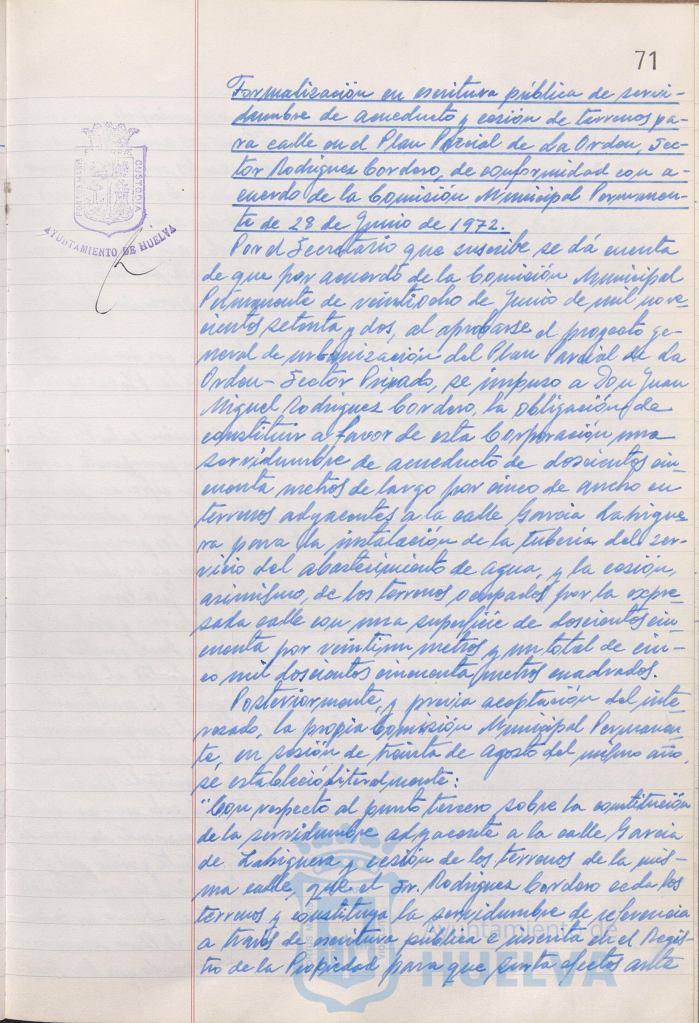 71
Formalización en escritura pública de servi-
dumbre de acueducto y cesión de terrenos pa-
ra calle en el Plan Parcial de La Orden, Sec-
tor Rodriguez Cordero, de conformidad con a-
cuerdo de la Comisión Municipal Permanen-
te de 28 de Junio de 1972.
PORTUS MARIS CUSTODIA
AYUNTAMIENTO DE HUELVA
Por el Secretario que suscribe se dá cuenta
de que por acuerdo de la Comisión Municipal
Permanente de veintiocho de Junio de mil nove-
cientos setenta y dos, al aprobarse el proyecto ge-
neral de urbanización del Plan Parcial de La
Orden - Sector Privado, se impuso a Don Juan
Miguel Rodriguez Cordero, la obligación de
constituir a favor de esta Corporación una
servidumbre de acueducto de doscientos cin-
cuenta metros de largo por cinco de ancho en
terrenos adyacentes a la calle Garcia Lahigue-
ra para la instalación de la tuberia del ser-
vicio del abastecimiento de agua, y la cesión,
asimismo, de los terrenos ocupados por la expre-
sada calle con una superficie de doscientos cin-
cuenta por veintiun metros y un total de cin-
co mil doscientos cincuenta metros cuadrados.
Posteriormente, y previa aceptación del inte-
resado, la propia Comisión Municipal Permanen-
te, en sesión de treinta de Agosto del mismo año,
se estableció literalmente:
"Con respecto al punto tercero sobre la constitución
de la servidumbre adyacente a la calle Garcia
de Lahiguera y cesión de los terrenos de la mis-
ma calle, que el Sr. Rodriguez Cordero ceda los
terrenos y constituya la servidumbre de referencia
a través de escritura pública e inscrita en el Regis-
tro de la Propiedad para que surta efectos ante
Ayuntamiento de
HUELVA